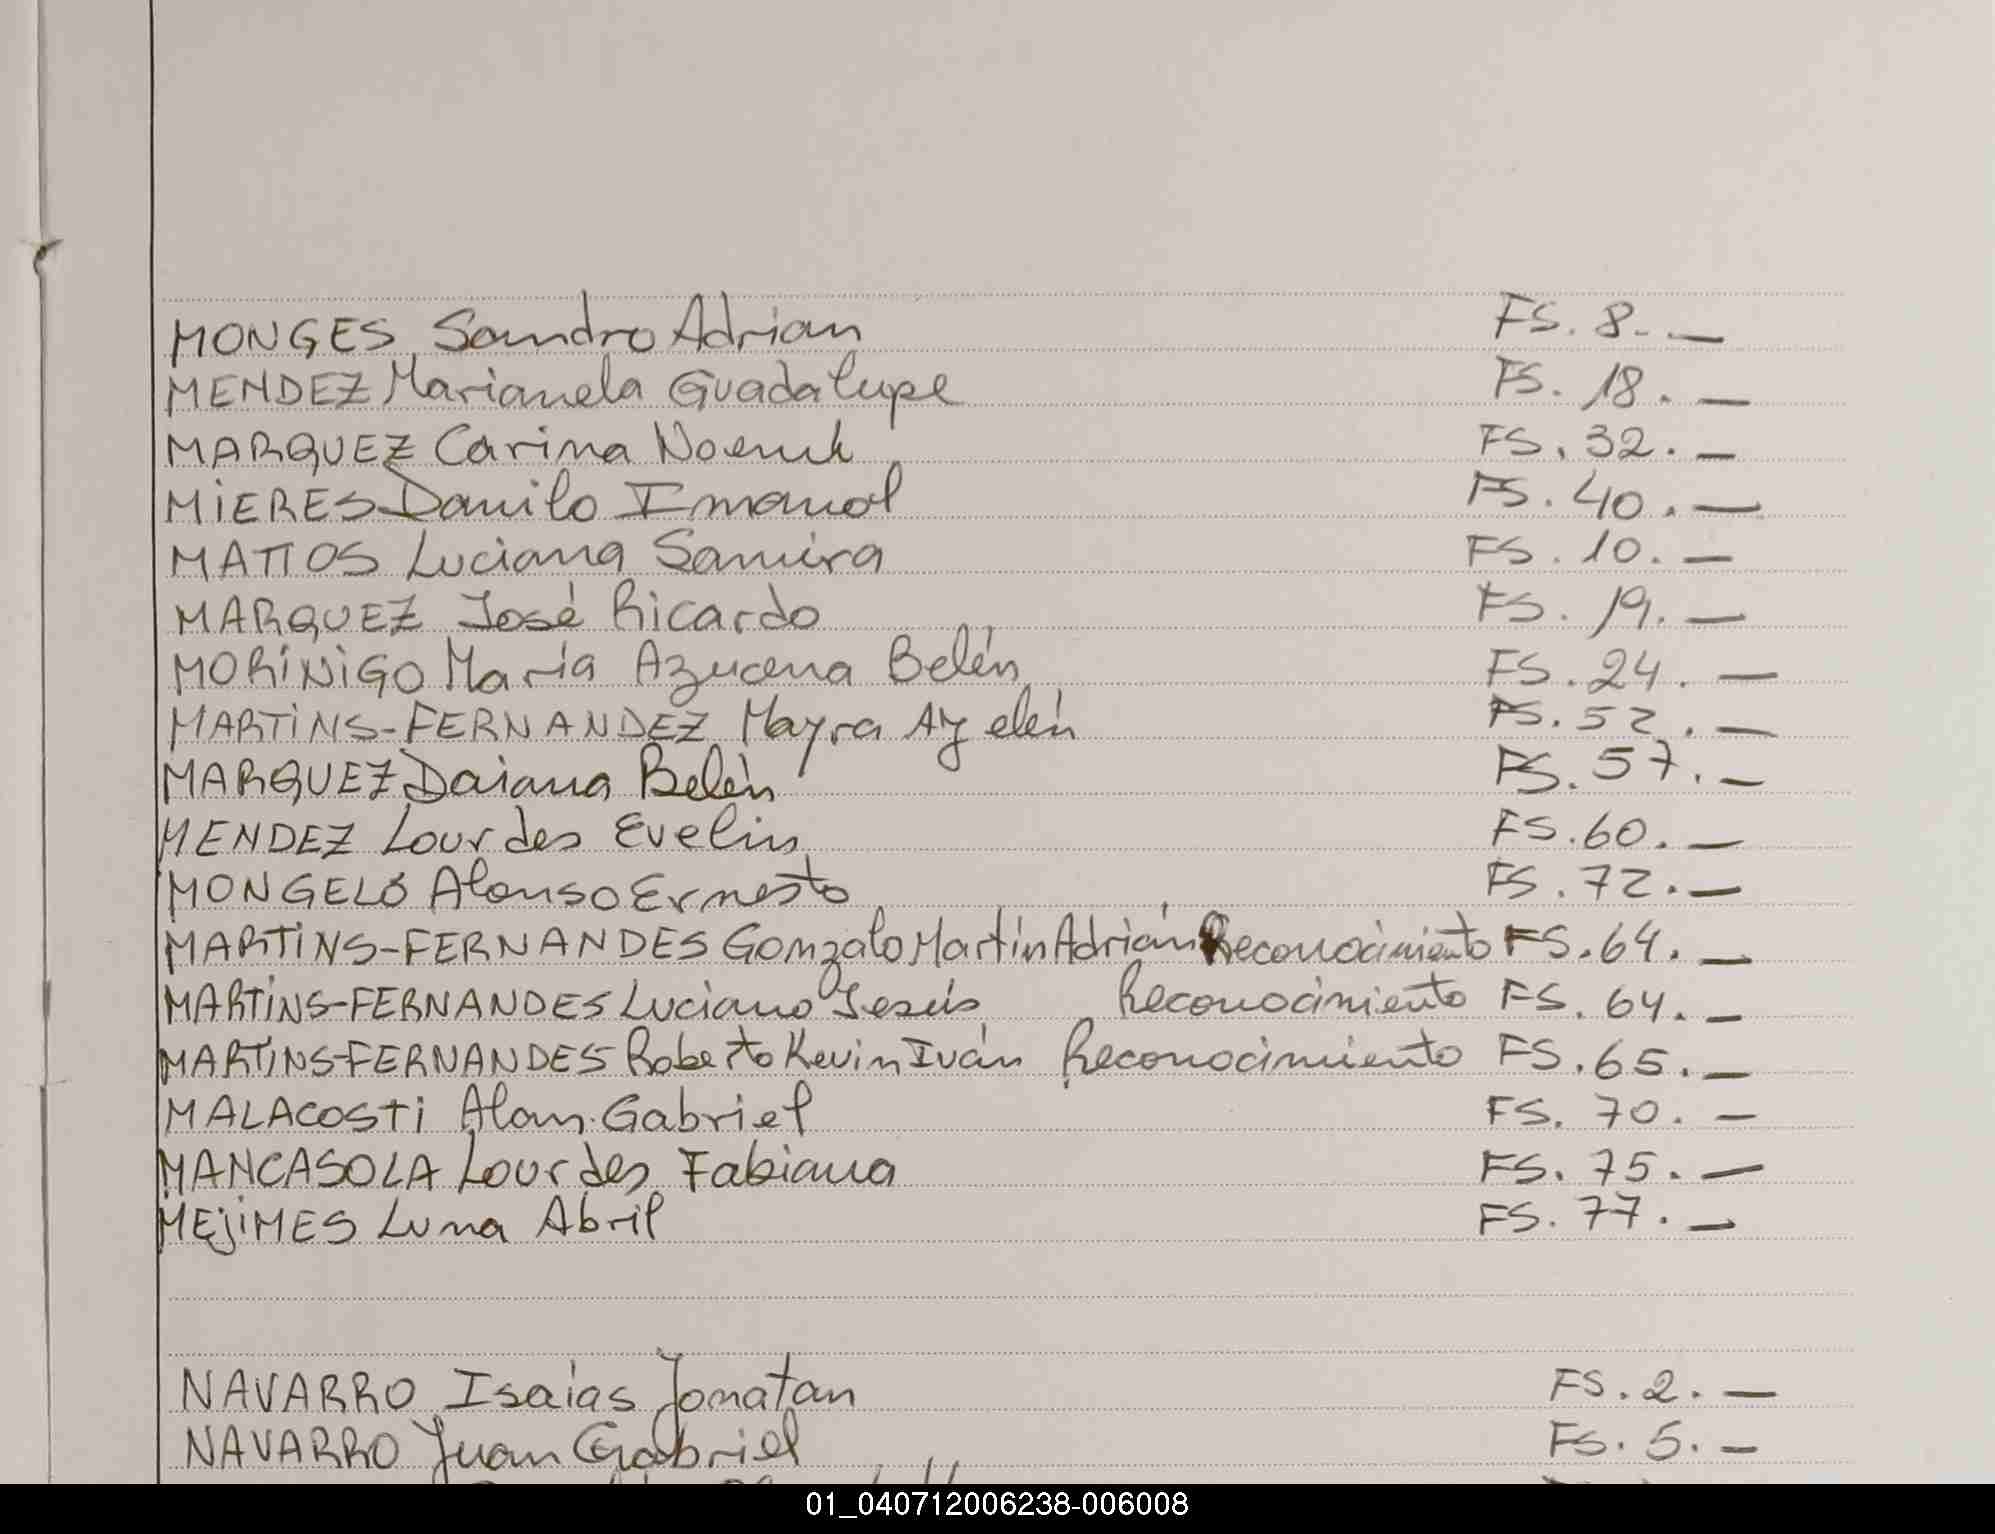 MONGES Sandro Adrian FS. 8.-
MENDEZ Marianela Guadalupe FS. 18.-
MARQUEZ Carina Noemi FS. 32.-
MIERES Danilo Imanol FS. 40.-
MATTOS Luciana Samira FS. 10.-
MARQUEZ José Ricardo FS. 19.-
MORINIGO María Azucena Belén FS. 24.-
MARTINS-FERNANDEZ Mayra Ayelén FS. 52.-
MARQUEZ Daiana Belén FS. 57.-
MENDEZ Lourdes Evelin FS. 60.-
MONGELÓ Alonso Ernesto FS. 72.-
MARTINS-FERNANDES Gonzalo Martín Adrián Reconocimiento FS. 64.-
MARTINS-FERNANDES Luciano Jesús Reconocimiento FS. 64.-
MARTINS-FERNANDES Roberto Kevin Iván Reconocimiento FS. 65.-
MALACOSTI Alan Gabriel FS. 70.-
MANCASOLA Lourdes Fabiana FS. 75.-
MEJIMES Luna Abril FS. 77.-
NAVARRO Isaías Jonatan FS. 2.-
NAVARRO Juan Gabriel FS. 5.-
01_040712006238-006008